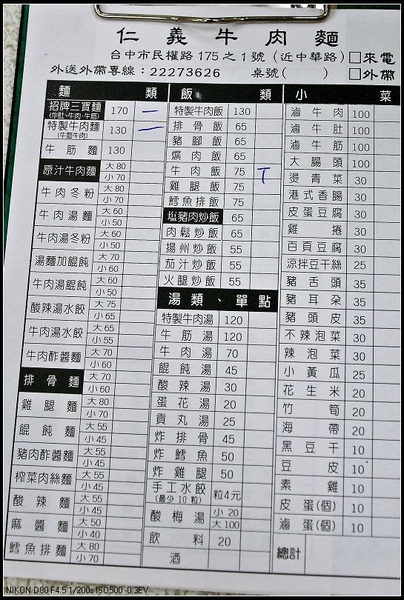 仁義牛肉麵
台中市民權路175之1號(近中華路) □來電
外送外帶專線:22273626 桌號( ) □外帶
麵類
招牌三寶麵(牛肚、牛肉、牛筋) 170 一
特製牛肉麵(牛筋牛肉) 130 二
牛筋麵 130
原汁牛肉麵 大80 小70
牛肉冬粉 大80 小70
牛肉湯麵 大60 小50
牛肉湯冬粉 大60 小50
湯麵加餛飩 大70 小60
牛肉湯餛飩 大60 小50
酸辣湯水餃 大75 小65
牛肉湯水餃 大65 小55
牛肉酢醬麵 大80 小70
排骨麵 大70 小60
雞腿麵 大80 小70
餛飩麵 大55 小45
豬肉酢醬麵 大55 小45
榨菜肉絲麵 大55 小45
酸辣麵 大55 小45
麻醬麵 大50 小40
鱈魚排麵 大80 小70
飯類
特製牛肉飯 130
排骨飯 65
豬腳飯 65
爌肉飯 65
牛肉飯 75 T
雞腿飯 75
鱈魚排飯 75
塩豬肉炒飯 65
肉鬆炒飯 65
揚州炒飯 55
茄汁炒飯 55
火腿炒飯 55
湯類、單點
特製牛肉湯 120
牛筋湯 120
牛肉湯 70
餛飩湯 45
酸辣湯 30
蛋花湯 20
貢丸湯 25
炸排骨 45
炸鱈魚 50
炸雞腿 50
手工水餃(最少10粒) 粒4元
酸梅湯 小20 大100
飲料 20
酒
小菜
滷牛肉 100
滷牛肚 100
滷牛筋 100
大腸頭 100
燙青菜 30
港式香腸 30
皮蛋豆腐 30
雞捲 30
百頁豆腐 30
涼拌豆干絲 25
豬舌頭 35
豬耳朵 35
豬頭皮 35
不辣泡菜 30
辣泡菜 30
小黃瓜 25
花生米 20
竹筍 20
海帶 20
黑豆干 10
豆皮 10
素雞 10
皮蛋(個) 10
滷蛋(個) 10
總計
NIKON D80 F4.5 1/200s ISO500 -0.3EV